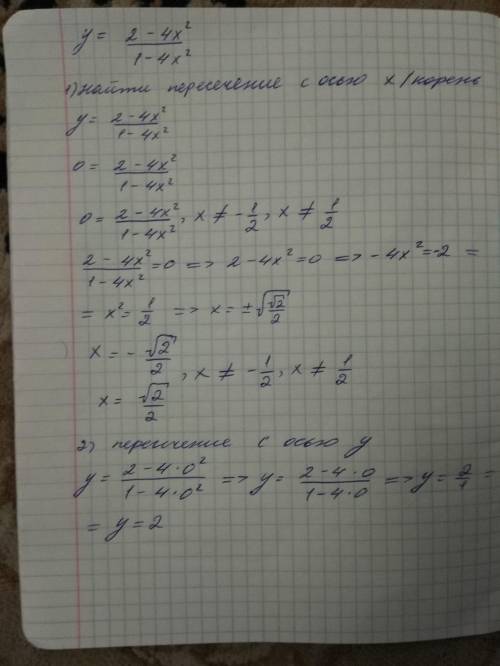 y = (2 - 4x²)/(1 - 4x²)
1) найти пересечение с осью x / корень
y = (2 - 4x²)/(1 - 4x²)
0 = (2 - 4x²)/(1 - 4x²)
0 = (2 - 4x²)/(1 - 4x²), x ≠ -1/2, x ≠ 1/2
(2 - 4x²)/(1 - 4x²) = 0 => 2 - 4x² = 0 => -4x² = -2 =
= x² = 1/2 => x = ±√(√2/2)
x = -√2/2
, x ≠ -1/2, x ≠ 1/2
x = √2/2
2) пересичение с осью y
y = (2 - 4·0²)/(1 - 4·0²) => y = (2 - 4·0)/(1 - 4·0) => y = 2/1 =
= y = 2